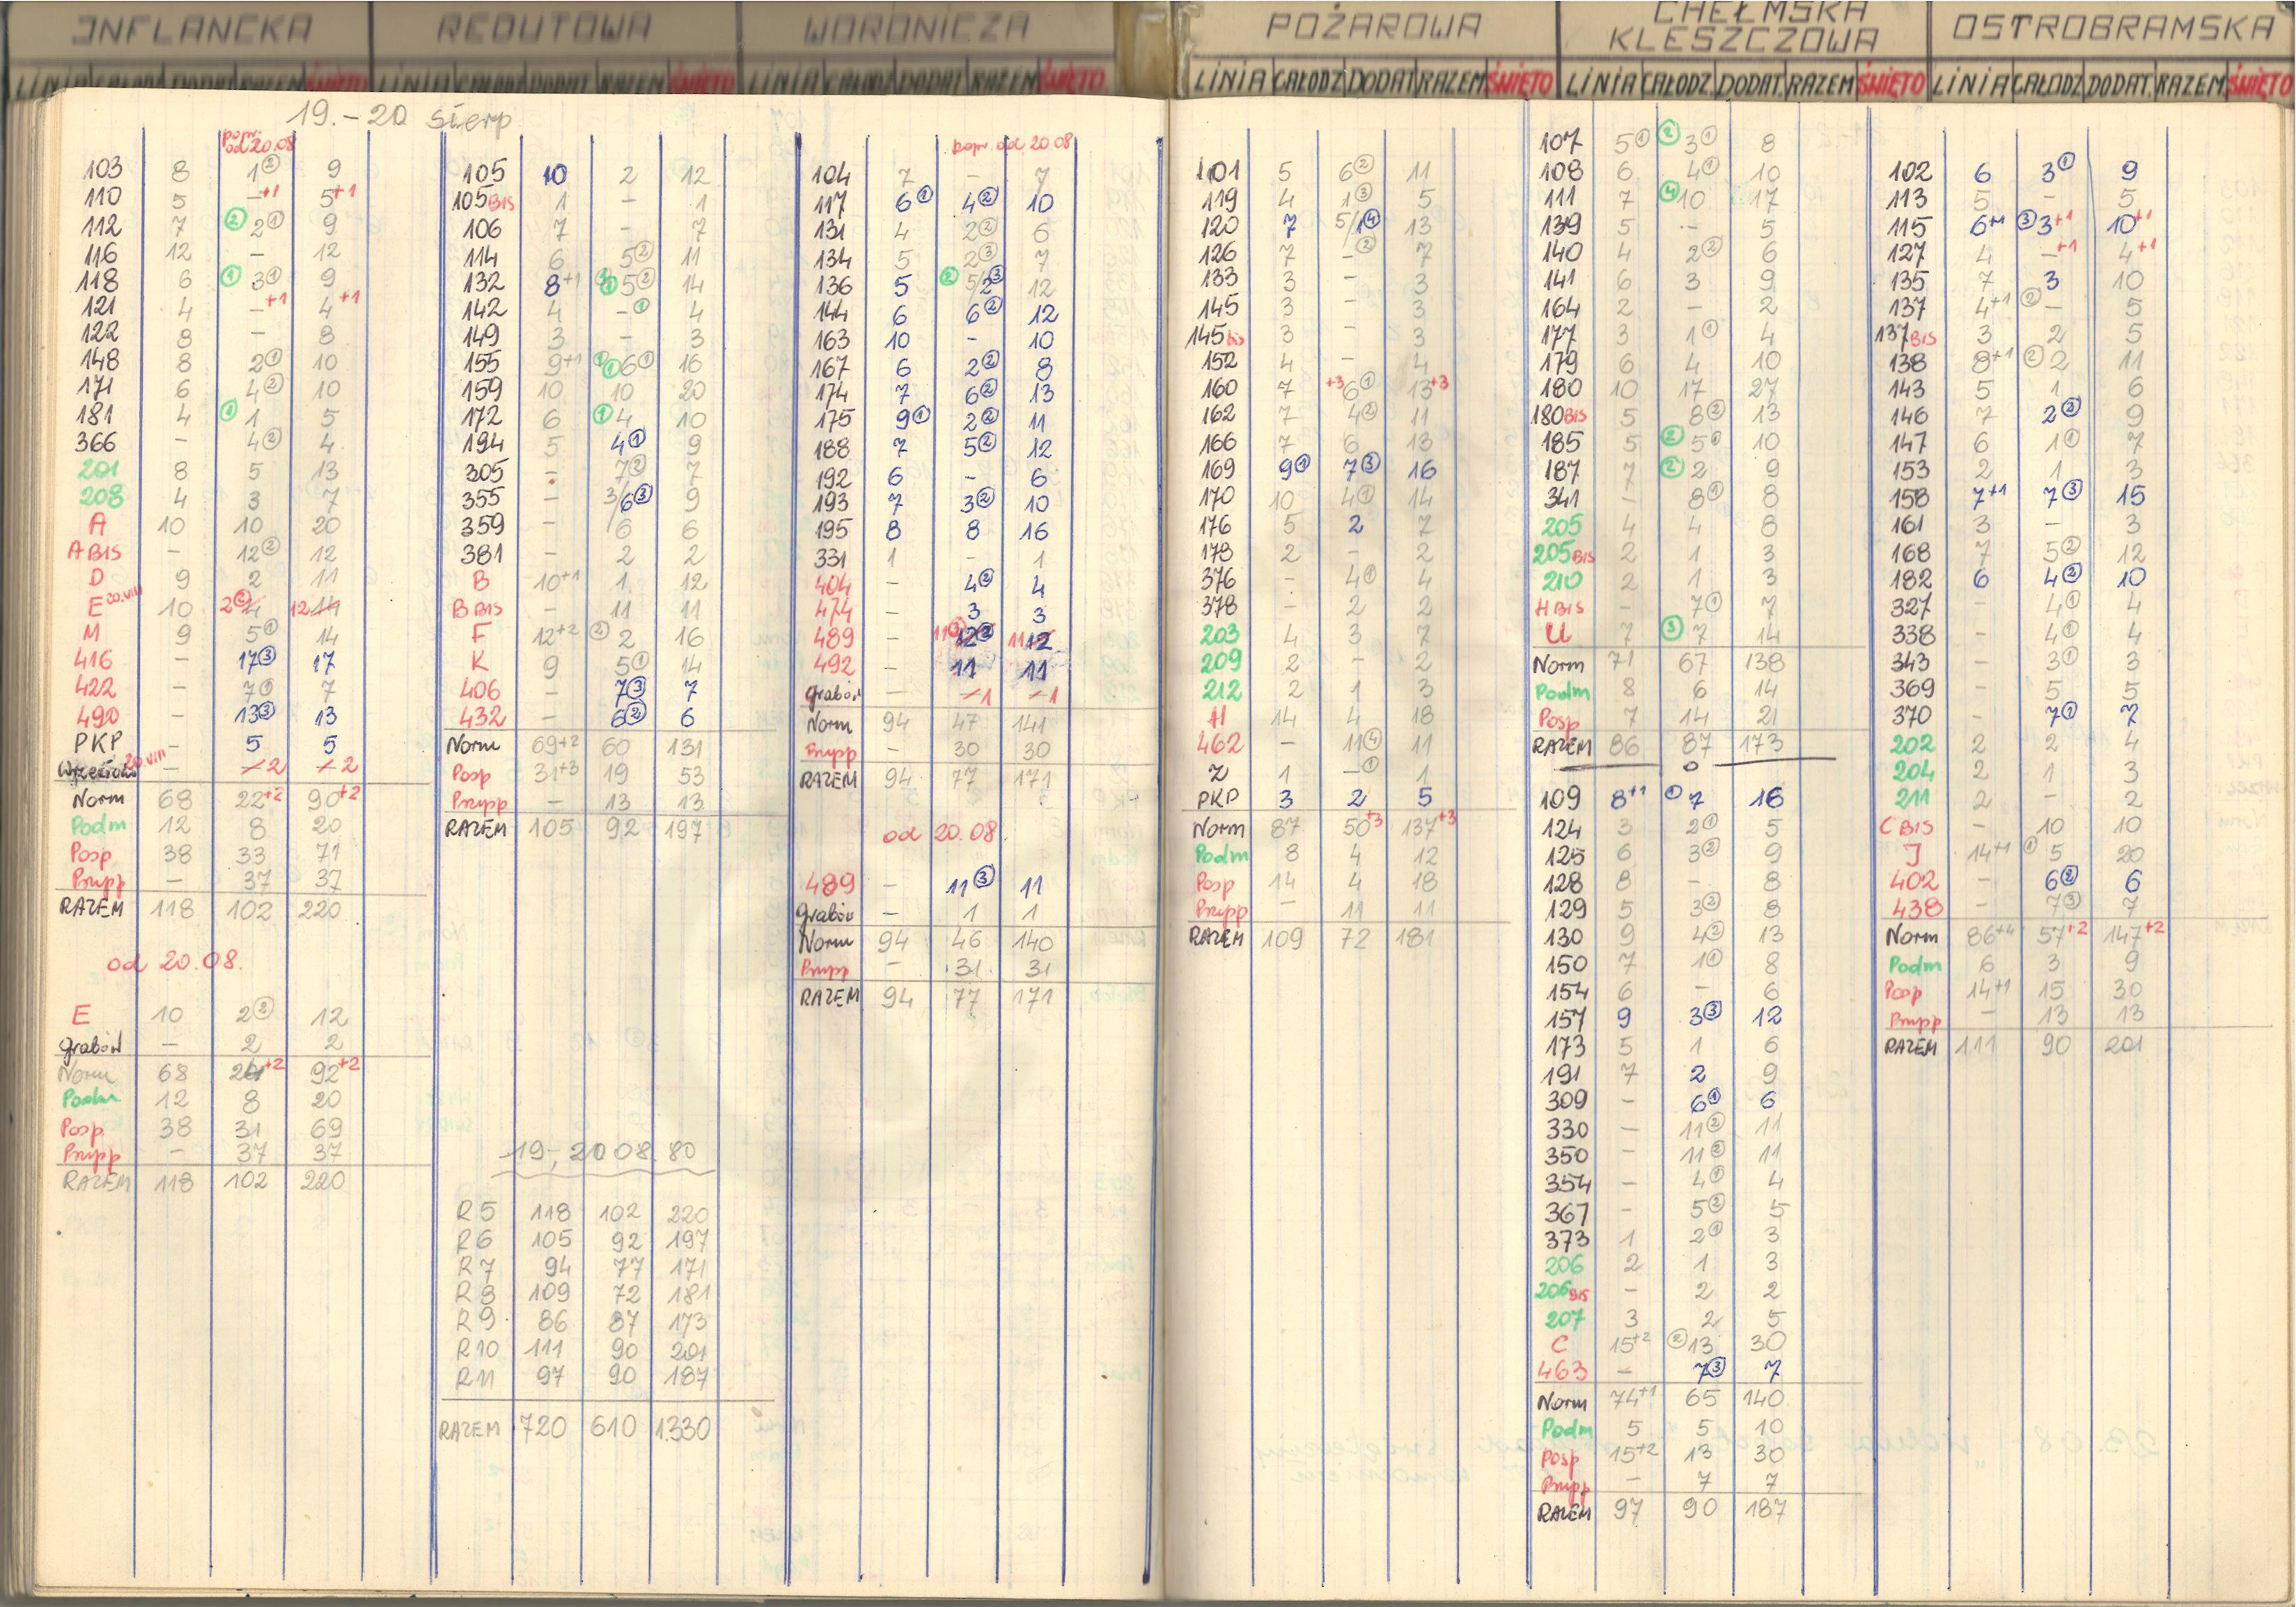 INFLANCKA
LINIA CAŁODZ DODAT RAZEM ŚWIĘTO
19.-20 sierp
popr. od 20.08
103 8 1② 9
110 5 -+1 5+1
112 7 ②2① 9
116 12 - 12
118 6 ①3① 9
121 4 -+1 4+1
122 8 - 8
148 8 2① 10
171 6 4② 10
181 4 ①1 5
366 - 4② 4
201 8 5 13
208 4 3 7
A 10 10 20
A BIS - 12② 12
D 9 2 11
E 20.VIII 10 2② 4 12 14
M 9 5① 14
416 - 17③ 17
422 - 7① 7
490 - 13③ 13
PKP - 5 5
20.VIII - 2 2
Norm 68 22+2 90+2
Podm 12 8 20
Posp 38 33 71
Przypp - 37 37
RAZEM 118 102 220
od 20.08.
E 10 2② 12
Grabów - 2 2
Norm 68 24+2 92+2
Podm 12 8 20
Posp 38 31 69
Przypp - 37 37
RAZEM 118 102 220
REDUTOWA
LINIA CAŁODZ DODAT RAZEM ŚWIĘTO
105 10 2 12
105 BIS 1 - 1
106 7 - 7
114 6 5② 11
132 8+1 5② 14
142 4 -① 4
149 3 - 3
155 9+1 ①6① 16
159 10 10 20
172 6 ①4 10
194 5 4① 9
305 - 7② 7
355 - 3/6③ 9
359 - 6 6
381 - 2 2
B 10+1 1 12
B BIS - 11 11
F 12+2 ②2 16
K 9 5① 14
406 - 7③ 7
432 - 6② 6
Norm 69+2 60 131
Posp 31+3 19 53
Przypp - 13 13
RAZEM 105 92 197
19-20 08.80
R5 118 102 220
R6 105 92 197
R7 94 77 171
R8 109 72 181
R9 86 87 173
R10 111 90 201
R11 97 90 187
RAZEM 720 610 1330
WORONICZA
LINIA CAŁODZ DODAT RAZEM ŚWIĘTO
popr. od 20 08
104 7 - 7
117 6① 4② 10
131 4 2② 6
134 5 2③ 7
136 5 ②5/2③ 12
144 6 6② 12
163 10 - 10
167 6 2② 8
174 7 6② 13
175 9① 2② 11
188 7 5② 12
192 6 - 6
193 7 3② 10
195 8 8 16
331 1 - 1
404 - 4② 4
474 - 3 3
489 - 11③ 12② 11 12
492 - 11 11
Grabów - 1 1
Norm 94 47 141
Przypp - 30 30
RAZEM 94 77 171
od 20.08.
489 - 11③ 11
Grabów - 1 1
Norm 94 46 140
Przypp - 31 31
RAZEM 94 77 171
POŻAROWA
LINIA CAŁODZ DODAT RAZEM ŚWIĘTO
101 5 6② 11
119 4 1③ 5
120 7 5/1④ 13
126 7 -② 7
133 3 - 3
145 3 - 3
145 bis 3 - 3
152 4 - 4
160 7 +3 6① 13+3
162 7 4② 11
166 7 6 13
169 9① 7③ 16
170 10 4① 14
176 5 2 7
178 2 - 2
376 - 4① 4
378 - 2 2
203 4 3 7
209 2 - 2
212 2 1 3
H 14 4 18
462 - 11④ 11
Z 1 -① 1
PKP 3 2 5
Norm 87 50+3 137+3
Podm 8 4 12
Posp 14 4 18
Przypp - 11 11
RAZEM 109 72 181
CHEŁMSKA
KLESZCZOWA
LINIA CAŁODZ. DODAT. RAZEM ŚWIĘTO
107 5① ②3① 8
108 6 4① 10
111 7 ④10 17
139 5 - 5
140 4 2② 6
141 6 3 9
164 2 - 2
177 3 1① 4
179 6 4 10
180 10 17 27
180 BIS 5 8② 13
185 5 ②5① 10
187 7 ②2 9
341 - 8① 8
205 4 4 8
205 BIS 2 1 3
210 2 1 3
H BIS - 7① 7
U 7 ③7 14
Norm 71 67 138
Podm 8 6 14
Posp 7 14 21
RAZEM 86 87 173
109 8+1 ①7 16
124 3 2① 5
125 6 3② 9
128 8 - 8
129 5 3② 8
130 9 4② 13
150 7 1① 8
154 6 - 6
157 9 3③ 12
173 5 1 6
191 7 2 9
309 - 6① 6
330 - 11② 11
350 - 11② 11
354 - 4① 4
367 - 5② 5
373 1 2① 3
206 2 1 3
206 BIS - 2 2
207 3 2 5
C 15+2 ②13 30
463 - 7③ 7
Norm 74+1 65 140
Podm 5 5 10
Posp 15+2 13 30
Przypp - 7 7
RAZEM 97 90 187
OSTROBRAMSKA
LINIA CAŁODZ DODAT. RAZEM ŚWIĘTO
102 6 3① 9
113 5 - 5
115 6+1 ③3+1 10+1
127 4 -+1 4+1
135 7 3 10
137 4+1 ②- 5
137 BIS 3 2 5
138 8+1 ②2 11
143 5 1 6
146 7 2② 9
147 6 1① 7
153 2 1 3
158 7+1 7③ 15
161 3 - 3
168 7 5② 12
182 6 4② 10
327 - 4① 4
338 - 4① 4
343 - 3① 3
369 - 5 5
370 - 7① 7
202 2 2 4
204 2 1 3
211 2 - 2
C BIS - 10 10
J 14+1 ①5 20
402 - 6② 6
438 - 7③ 7
Norm 86+4 57+2 147+2
Podm 6 3 9
Posp 14+1 15 30
Przypp - 13 13
RAZEM 111 90 201